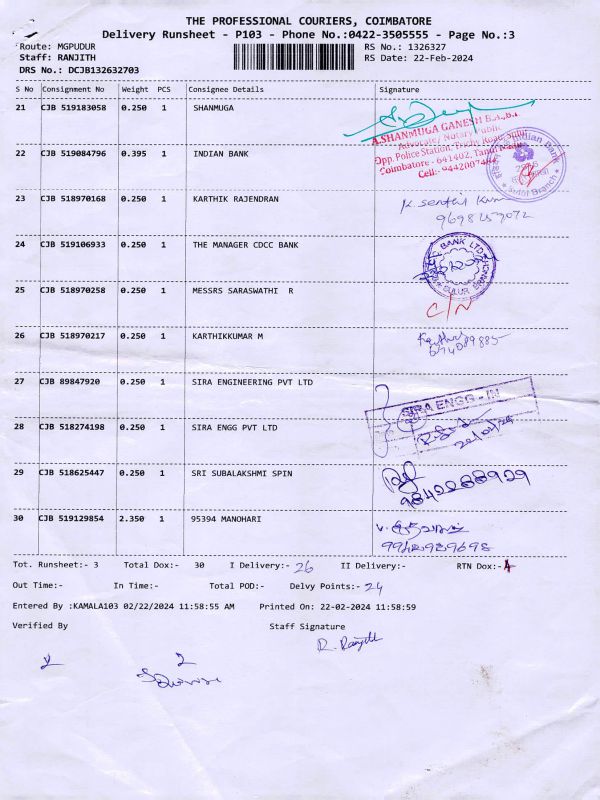 THE PROFESSIONAL COURIERS, COIMBATORE
Delivery Runsheet - P103 - Phone No.:0422-3505555 - Page No.:3
Route: MGPUDUR RS No.: 1326327
Staff: RANJITH RS Date: 22-Feb-2024
DRS No.: DCJB132632703
S No Consignment No Weight PCS Consignee Details Signature
21 CJB 519183058 0.250 1 SHANMUGA
A.SHANMUGA GANESH B.A.,B.L
Advocate/ Notary Public
Opp. Police Station, Trichy Road, Sulur
Coimbatore - 641402, Tamil Nadu
Cell:
22 CJB 519084796 0.395 1 INDIAN BANK
Indian Bank
Sulur Branch
23 CJB 518970168 0.250 1 KARTHIK RAJENDRAN
K. Senthil Kum
24 CJB 519106933 0.250 1 THE MANAGER CDCC BANK
BANK LTD
SULUR BRANCH
25 CJB 518970258 0.250 1 MESSRS SARASWATHI R
C/N
26 CJB 518970217 0.250 1 KARTHIKKUMAR M
27 CJB 89847920 0.250 1 SIRA ENGINEERING PVT LTD
SIRA ENGG - IN
28 CJB 518274198 0.250 1 SIRA ENGG PVT LTD
29 CJB 518625447 0.250 1 SRI SUBALAKSHMI SPIN
9842288929
30 CJB 519129854 2.350 1 95394 MANOHARI
Tot. Runsheet:- 3 Total Dox:- 30 I Delivery:- 26 II Delivery:- RTN Dox:- 4
Out Time:- In Time:- Total POD:- Delvy Points:- 24
Entered By :KAMALA103 02/22/2024 11:58:55 AM Printed On: 22-02-2024 11:58:59
Verified By Staff Signature
R. Ranjith
2